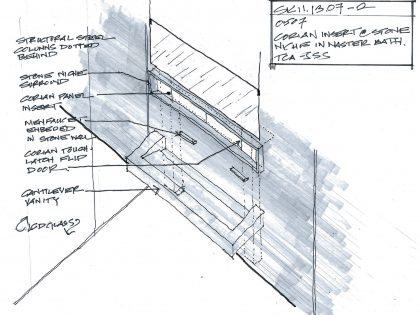 SK11.13.07-02
0507
CORIAN INSERT @ STONE
NICHE IN MASTER BATH.
TCA-JSS
STRUCTURAL STEEL
COLUMNS DOTTED
BEHIND
STONE NICHE
SURROUND
CORIAN PANEL
INSERT
FAUCET
EMBEDED
IN STONE WALL
CORIAN TOUCH
LATCH FLIP
DOOR
CANTILEVER
VANITY